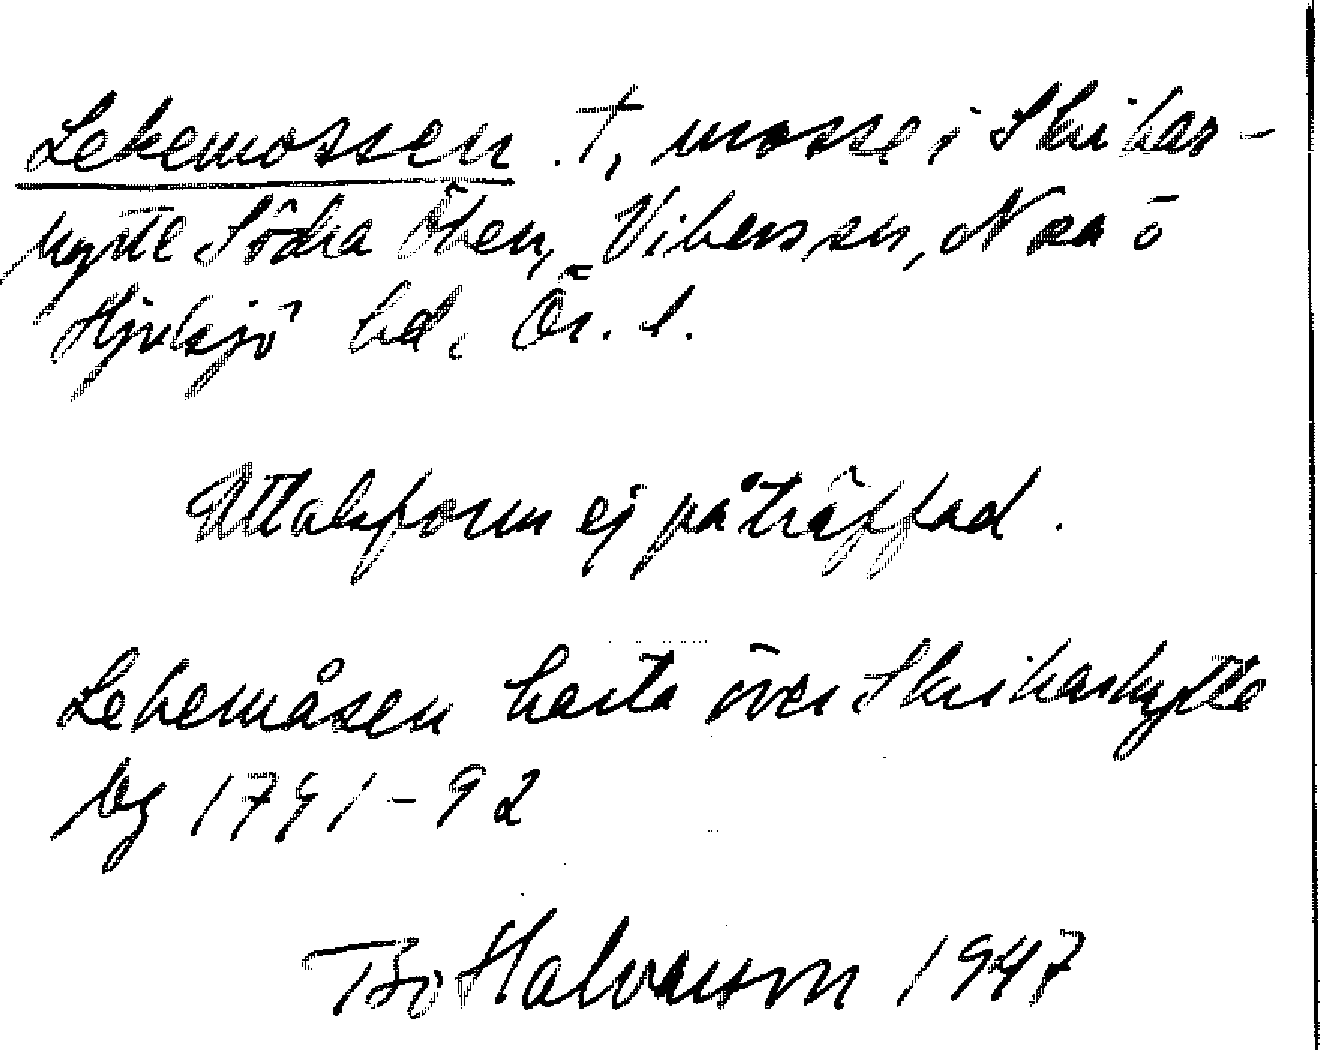 Lekemossen . t, mosse i Skrikar-
hytte Södra Öken, Vikers sn, Nora o
Hjulsjö hd. Ör. l.
Uttalsform ej påträffad.
Lekemåsen karta över Skrikarhytte
by 1791-92
Bo Halvarson 1947